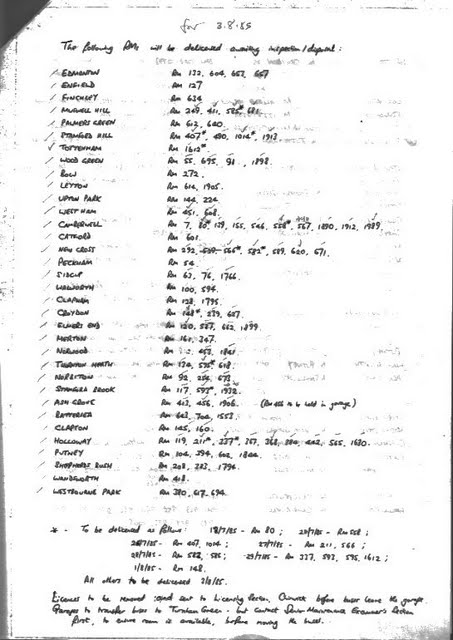 for 3.8.85
The following RMs will be delicensed awaiting inspection/disposal:
EDMONTON RM 132, 604, 653, 667
ENFIELD RM 127
FINCHLEY RM 634
MUSWELL HILL RM 249, 411, 585*, 681.
PALMERS GREEN RM 613, 640
STAMFORD HILL RM 407*, 490, 1014*, 1913
TOTTENHAM RM 1612*
WOOD GREEN RM 55, 695, 1898
BOW RM 272.
LEYTON RM 614, 1905.
UPTON PARK RM 144, 224
WEST HAM RM 451, 608.
CAMBERWELL RM 7, 80*, 129, 155, 546, 558*, 567, 1890, 1912, 1989
CATFORD RM 601
NEW CROSS RM 292, 566*, 582*, 589, 620, 671.
PECKHAM RM 54
SIDCUP RM 63, 76, 1766.
WALWORTH RM 100, 594.
CLAPHAM RM 128, 1795.
CROYDON RM 148*, 239, 627.
ELMERS END RM 120, 587, 662, 1899.
MERTON RM 161, 347.
NORWOOD RM 453, 1841
THORNTON HEATH RM 134, 595*, 618.
NORBITON RM 92, 234, 673
STAMFORD BROOK RM 117, 593*, 1932
ASH GROVE RM 413, 456, 1906. (RM 456 to be held in garage)
BATTERSEA RM 643, 704, 1553
CLAPTON RM 145, 160.
HOLLOWAY RM 119, 211*, 337*, 357, 368, 380, 442, 565, 1680.
PUTNEY RM 104, 394, 602, 1844.
SHEPHERDS BUSH RM 208, 283, 1794.
WANDSWORTH RM 418.
WESTBOURNE PARK RM 380, 617, 694.
* - To be delicensed as follows: 18/7/85 - RM 80; 22/7/85 - RM 558;
26/7/85 - RM 407, 1014; 27/7/85 - RM 211, 566;
28/7/85 - RM 582, 585; 29/7/85 - RM 337, 593, 595, 1612;
1/8/85 - RM 148.
All others to be delicensed 2/8/85.
Licences to be removed and sent to Licensing Section, Chiswick before buses leave the garage.
Garages to transfer buses to Turnham Green - but contact Senior Maintenance Engineer's Section
first, to ensure room is available, before moving the buses.